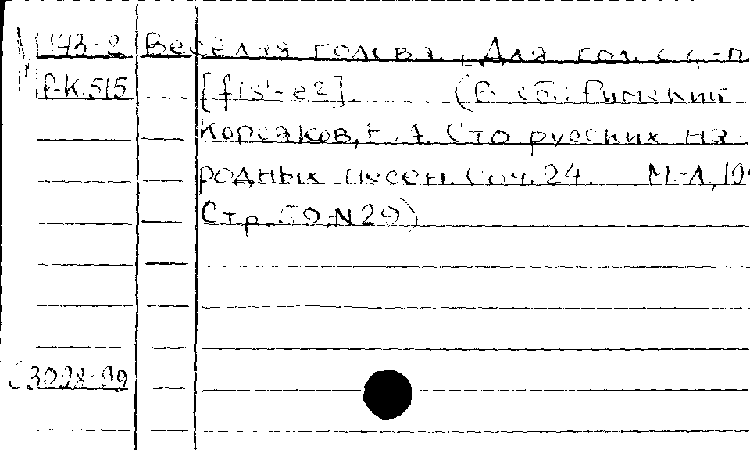 143-2 Весёлая голова. Для гол. с ф-п.
Р-К.515 [fis'-e2]. (В сб: Римский-
Корсаков, Н. А. Сто русских на-
родных песен. Соч. 24. М-Л, 19
Стр. 59. N 29)